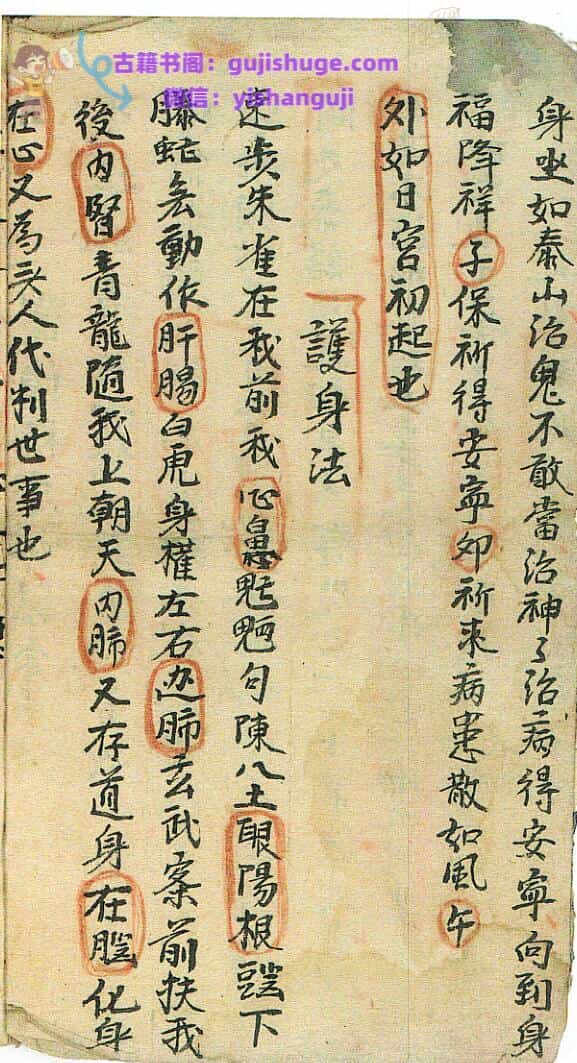 古籍书阁：gujishuge.com
微信：yishanguji
身坐如泰山治鬼不敢當治神了治病得安寧向到身
福降祥子保祈得安寧卯祈来病患散如風午
外如日宫初起也
護身法
速步朱雀在我前我心魁魉句陳八土眼陽根 下
螣蛇玄動作肝腸白虎身權左右边肺玄武案前扶我
後内腎青龍随我上朝天内肺又存道身在 化身
在心又為 人代判世事也